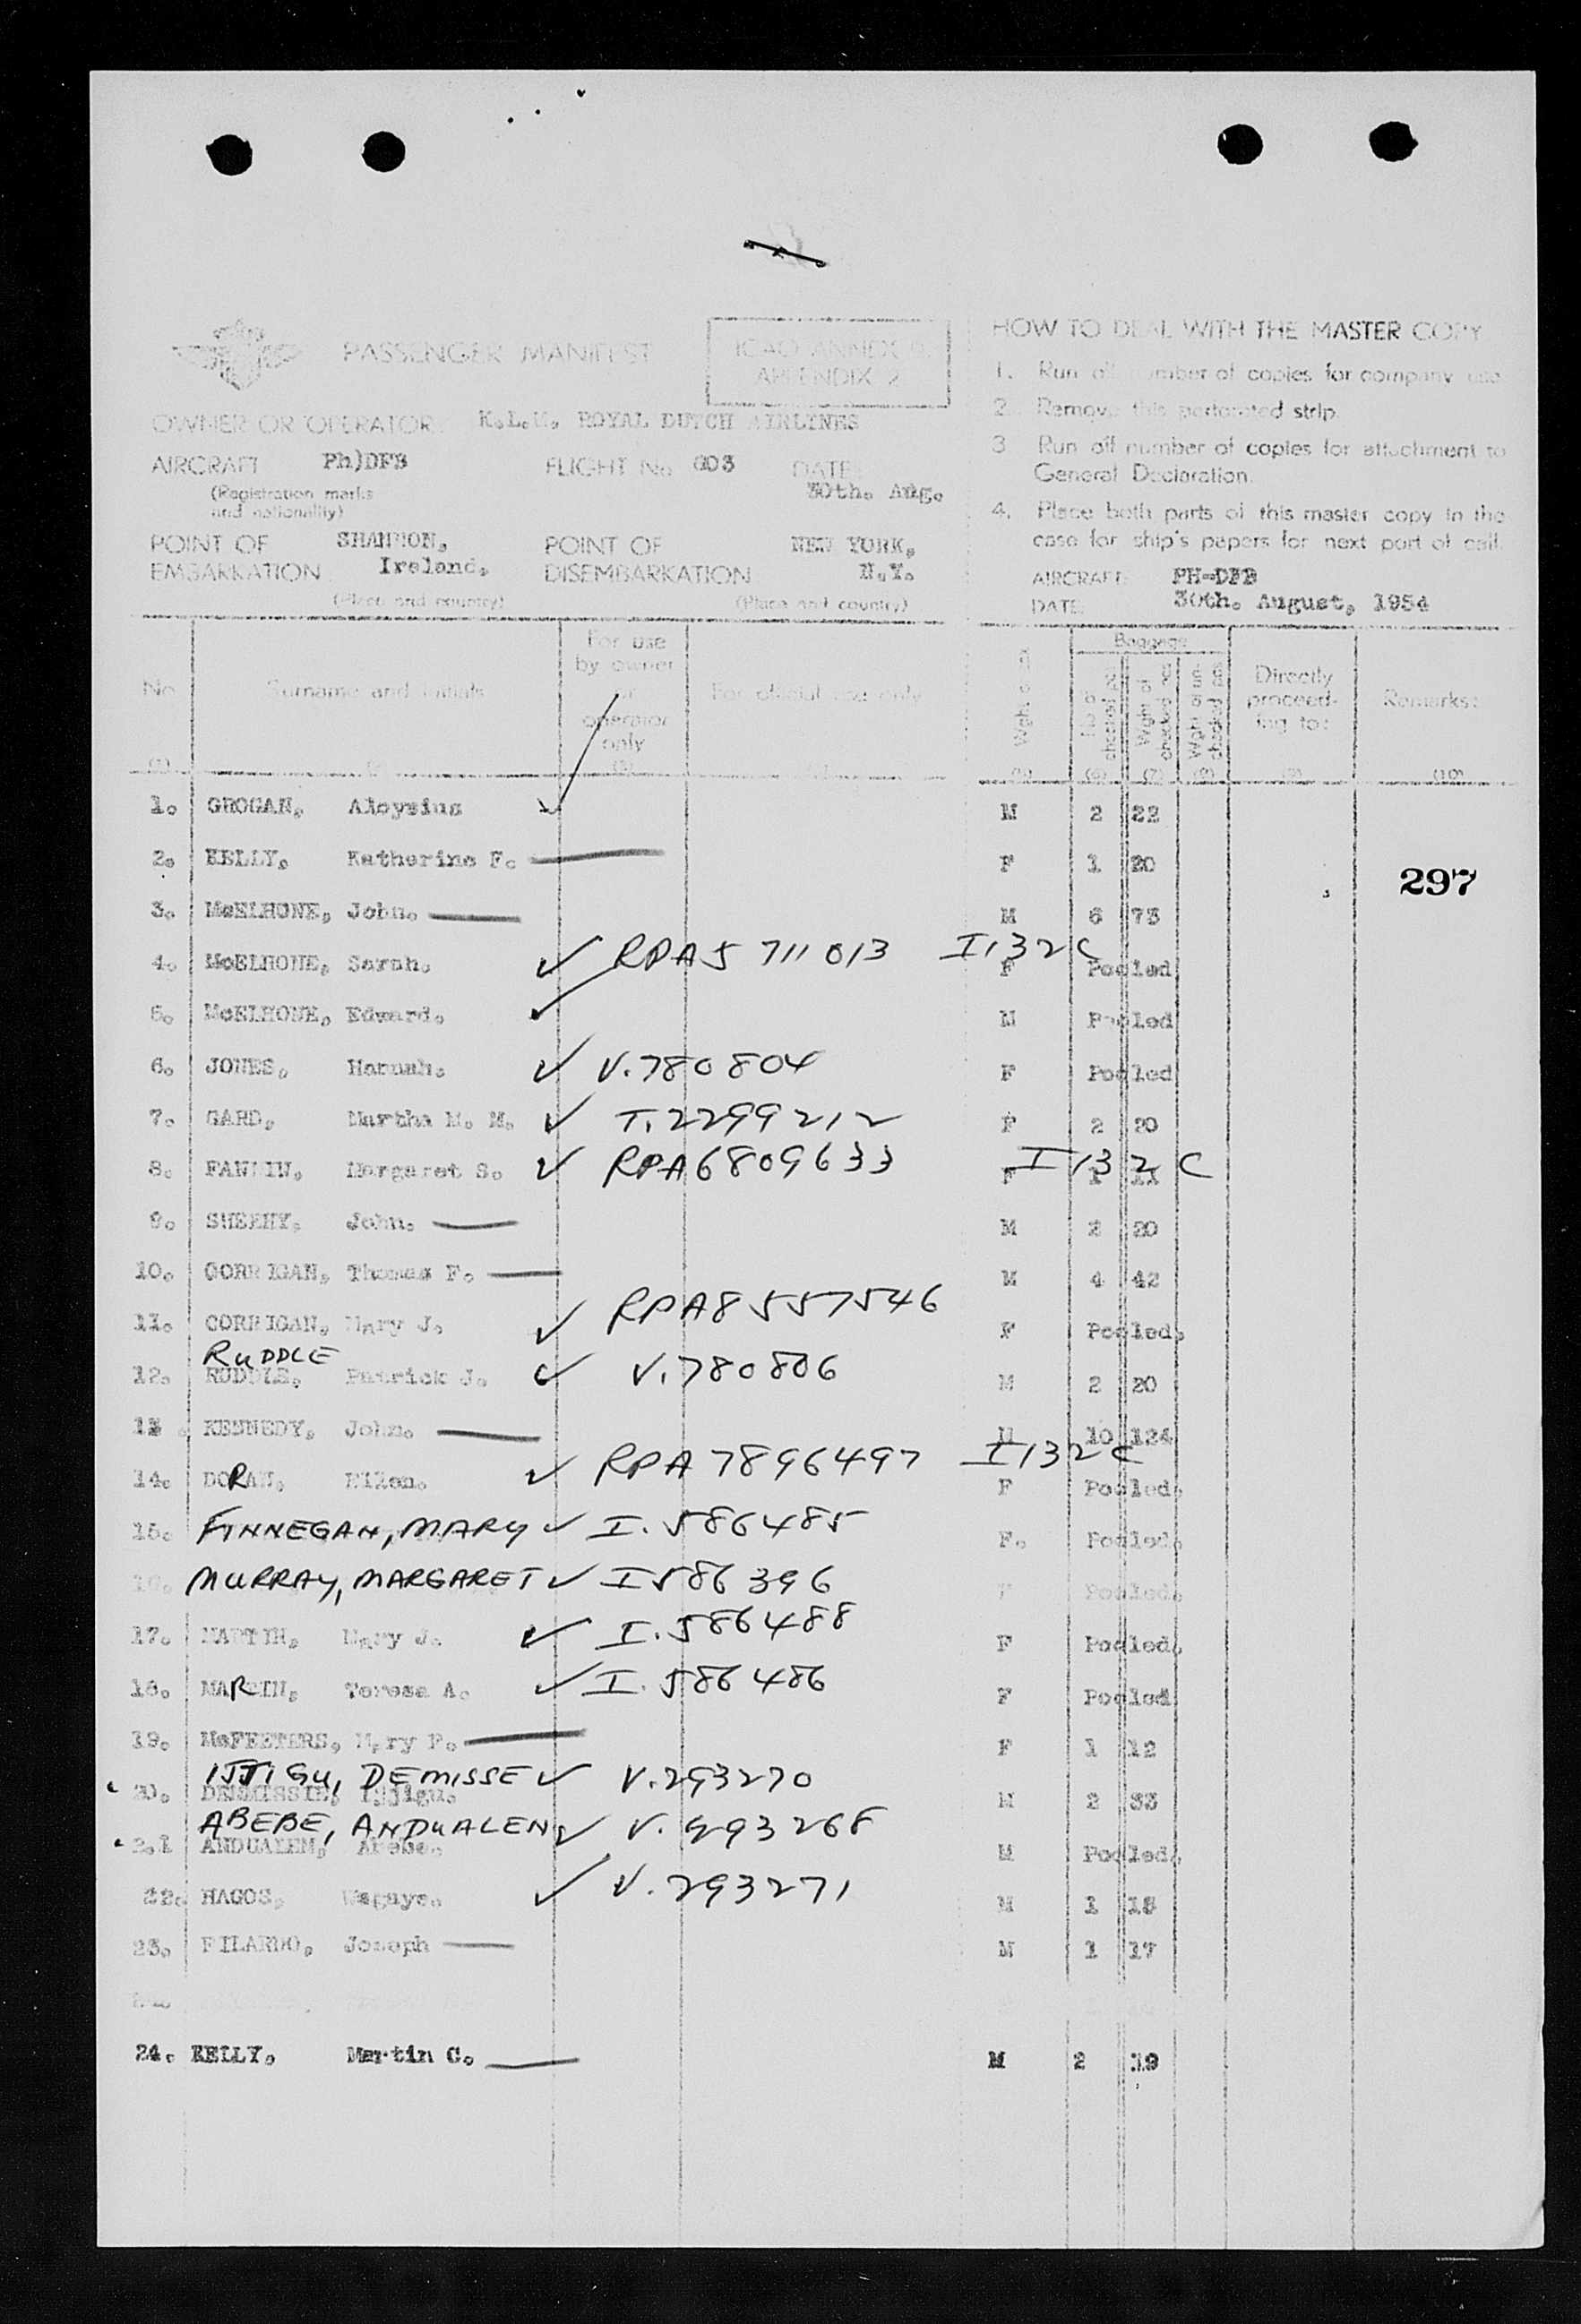 PASSENGER MANIFEST
ICAO ANNEX 9
APPENDIX 2
OWNER OR OPERATOR: K.L.M. ROYAL DUTCH AIRLINES
AIRCRAFT Ph)DFB FLIGHT No 603 DATE: 30th. Aug.
(Registration marks and nationality)
POINT OF EMBARKATION SHANNON, Ireland. POINT OF DISEMBARKATION NEW YORK, N.Y.
(Place and country) (Place and country)
HOW TO DEAL WITH THE MASTER COPY
1. Run off number of copies for company use
2. Remove this perforated strip.
3 Run off number of copies for attachment to General Declaration.
4. Place both parts of this master copy in the case for ship's papers for next port of call.
AIRCRAFT: PH-DFB
DATE: 30th. August, 1954
No Surname and initials For use by owner or operator only For official use only Baggage Directly proceed-ing to: Remarks:
(1) (3) (6) (7) (8) (9) (10)
1. GROGAN, Aloysius ✓ M 2 22
2. KELLY, Katherine F. F 1 20
297
3. McELHONE, John. M 6 73
4. McELHONE, Sarah. ✓ RPA5 711013 I132C F Pooled
5. McELHONE, Edward. ✓ M Pooled
6. JONES, Hannah. ✓ V.780804 F Pooled
7. GARD, Martha M. M. ✓ T.2299212 F 2 20
8. FANNIN, Margaret S. ✓ RPA6809633 I132C F 1 11
9. SHEEHY, John. M 2 20
10. CORRIGAN, Thomas F. M 4 42
11. CORRIGAN, Mary J. ✓ RPA8557546 F Pooled.
RUDDLE
12. RUDDLE, Patrick J. ✓ V.780806 M 2 20
13. KENNEDY, John. M 10 124
14. DORAN, Eilen. ✓ RPA7896497 I132C F Pooled.
15. FINNEGAN, MARY ✓ I.586485 F. Pooled.
16. MURRAY, MARGARET ✓ I586396 F Pooled.
17. MARTIN, Mary J. ✓ I.586488 F Pooled.
18. MARTIN, Teresa A. ✓ I.586486 F Pooled
19. McFEETERS, Mary P. F 1 12
IJJIGU, DEMISSE ✓ V.293270
20. DEMISSIE, Ijjigu. M 2 33
ABEBE, ANDUALEM ✓ V.293268
2.1 ANDUALEM, Abebe. M Pooled.
22. HAGOS, ✓ V.293271 M 1 18
23. FILARDO, Joseph M 1 17
24. KELLY, Martin C. M 2 19